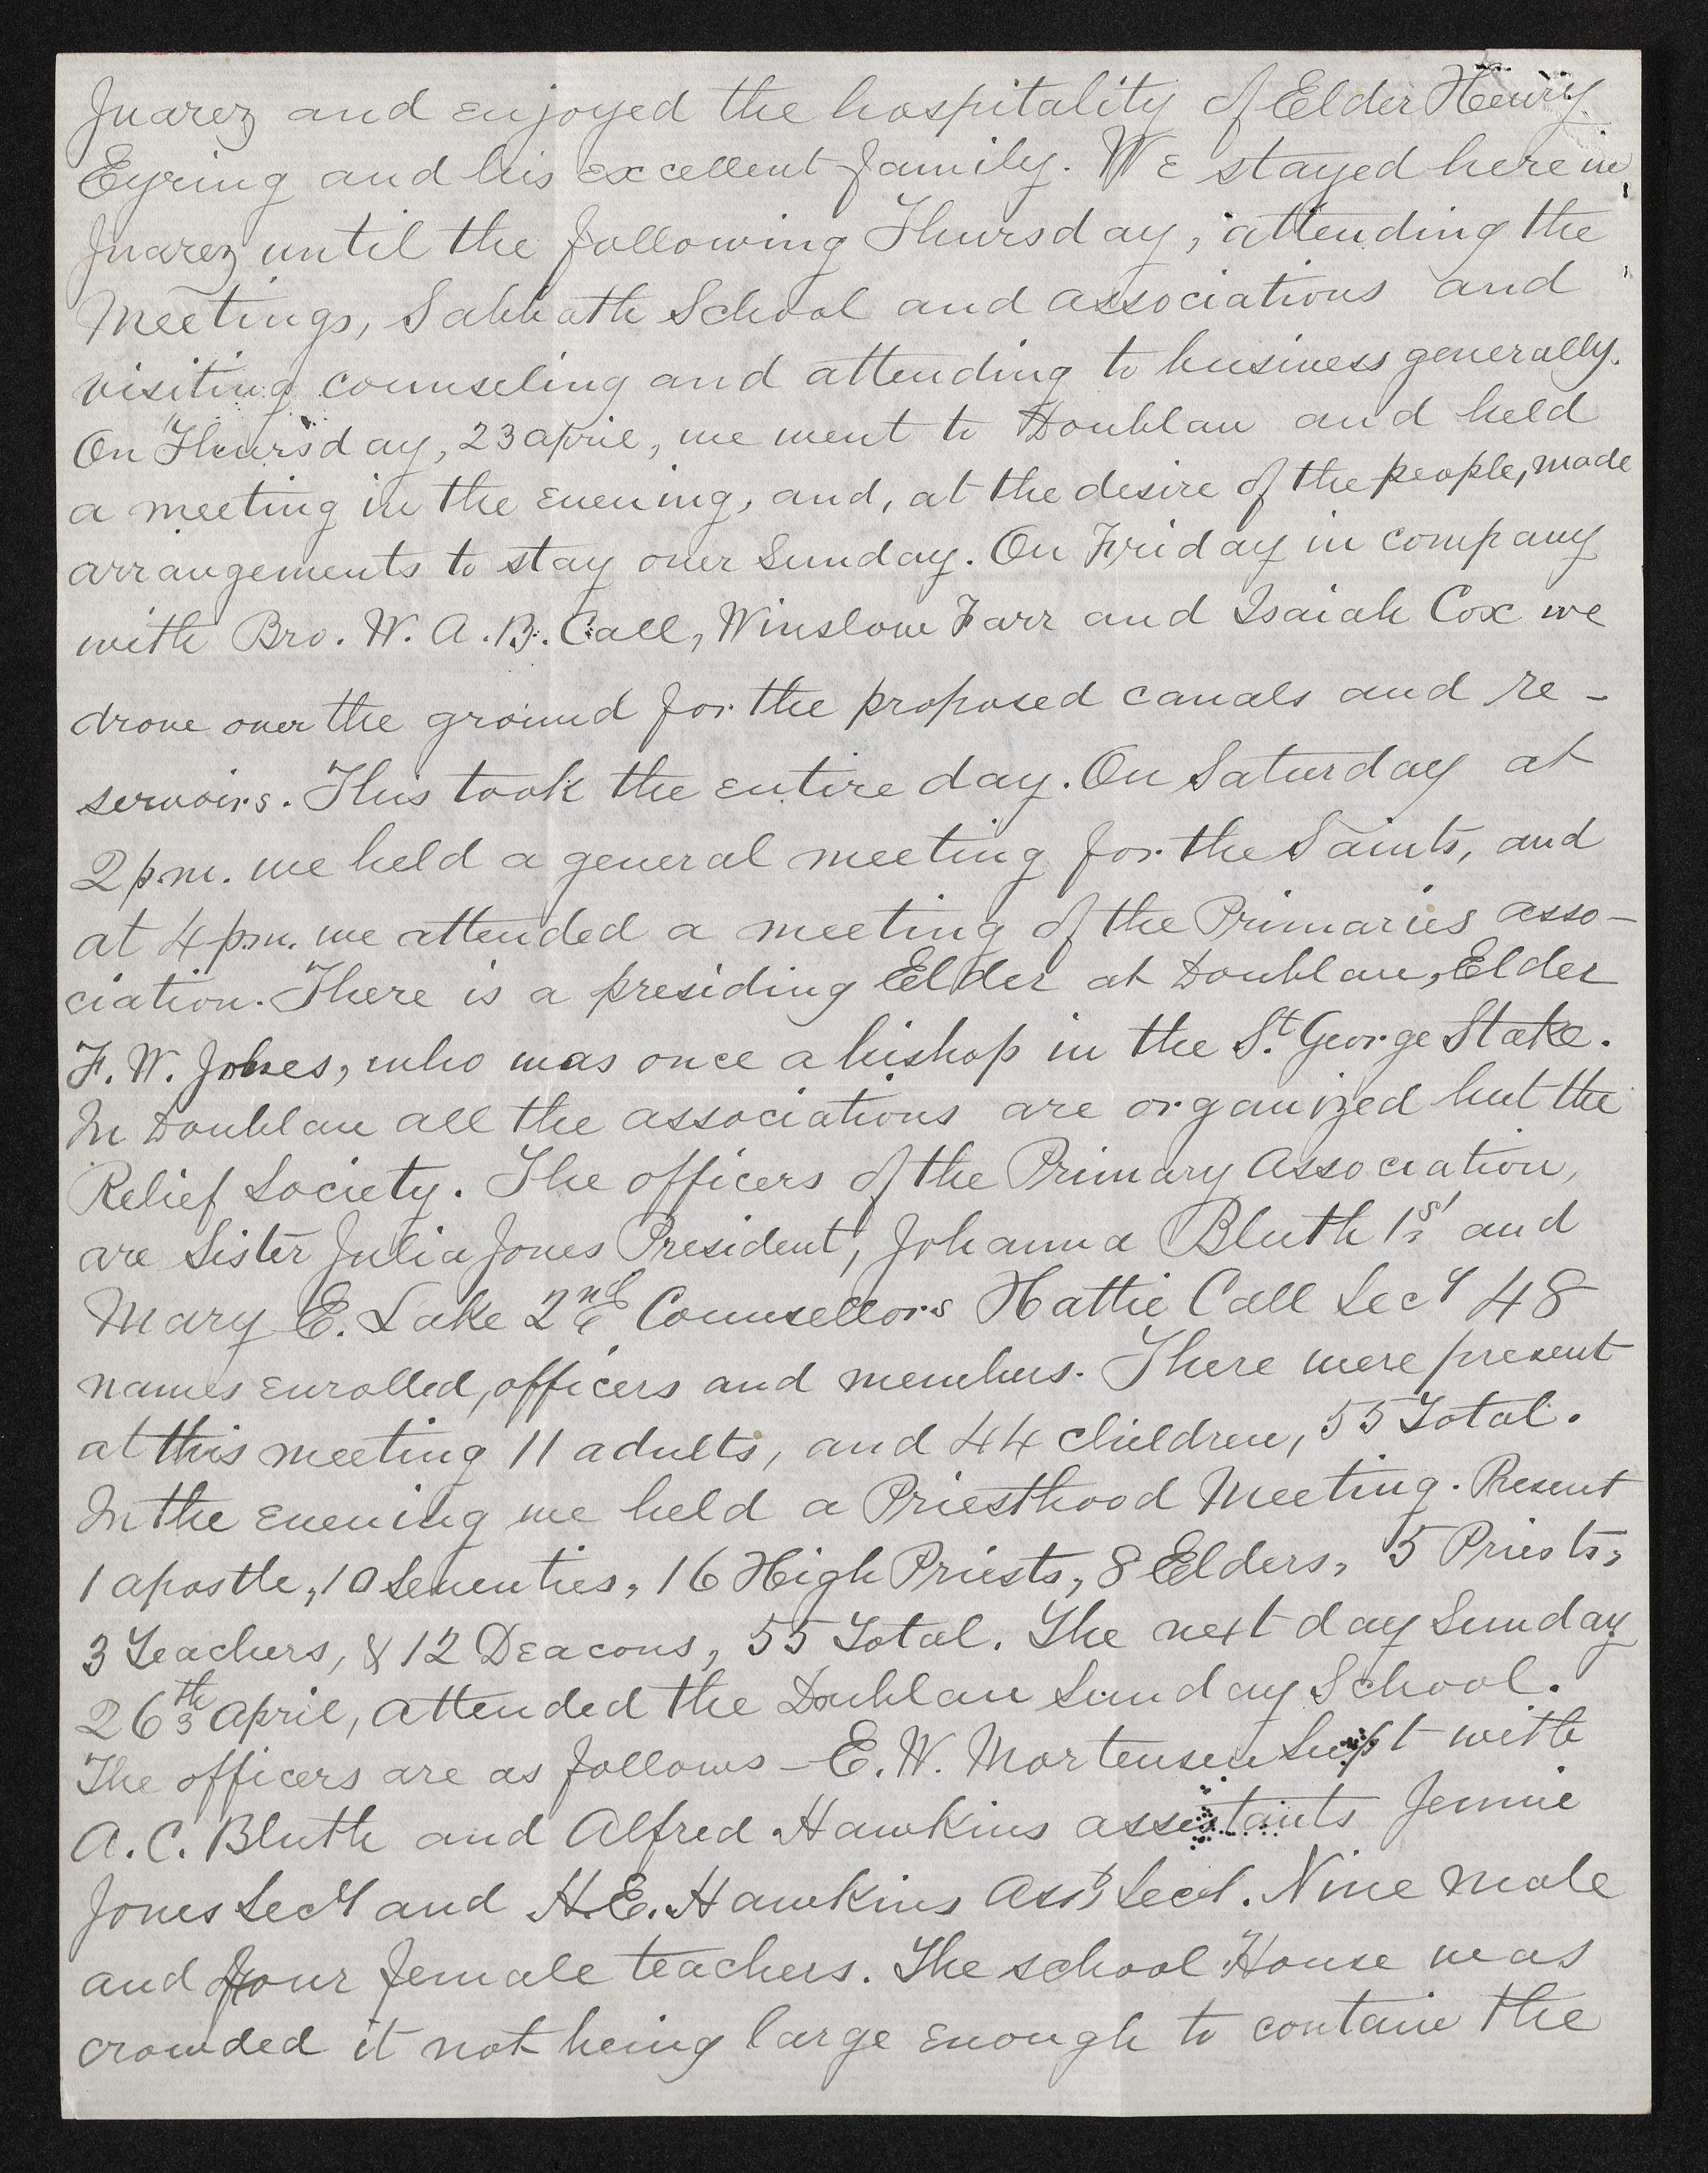 Juarez and enjoyed the hospitality of Elder Henry
Eyring and his excellent family. We stayed here in
Juarez until the following Thursday, attending the
Meetings, Sabbath School and associations and
visiting counseling and attending to business generally.
On Thursday, 23 april, we went to Doublan and held
a meeting in the evening, and, at the desire of the people, made
arrangements to stay over Sunday. On Friday in company
with Bro. W. A. B. Call, Winslow Farr and Isaiah Cox we
drove over the ground for the proposed canals and re-
servoirs. This took the entire day. On Saturday at
2 pm. we held a general meeting for the Saints, and
at 4 p.m. we attended a meeting of the Primaries asso-
ciation. There is a presiding Elder at Doublan, Elder
F. W. Jones, who was once a bishop in the St. George Stake.
In Doublan all the associations are organized but the
Relief Society. The officers of the Primary Association,
are Sister Julia Jones President, Johanna Bluth 1st and
Mary E. Lake 2nd Counsellors Hattie Call Secy 48
names enrolled, officers and members. There were present
at this meeting 11 adults, and 44 children, 55 Total.
In the evening we held a Priesthood Meeting. Present
1 apostle, 10 Seventies, 16 High Priests, 8 Elders, 5 Priests,
3 Teachers, & 12 Deacons, 55 Total. The next day Sunday
26th april, attended the Dublan Sunday School.
The officers are as follows - E. W. Mortensen Supt with
A. C. Bluth and Alfred Hawkins assistants Jennie
Jones Secy and H. E. Hawkins Asst Secy. Nine male
and four female teachers. The school House was
crowded it not being large enough to contain the